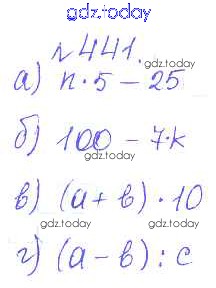 gdz.today
№441.
gdz.today
а) n·5 – 25
б) 100 – 7·k
gdz.today
в) (a + b) · 10
gdz.today
г) (a – b) : c
gdz.today